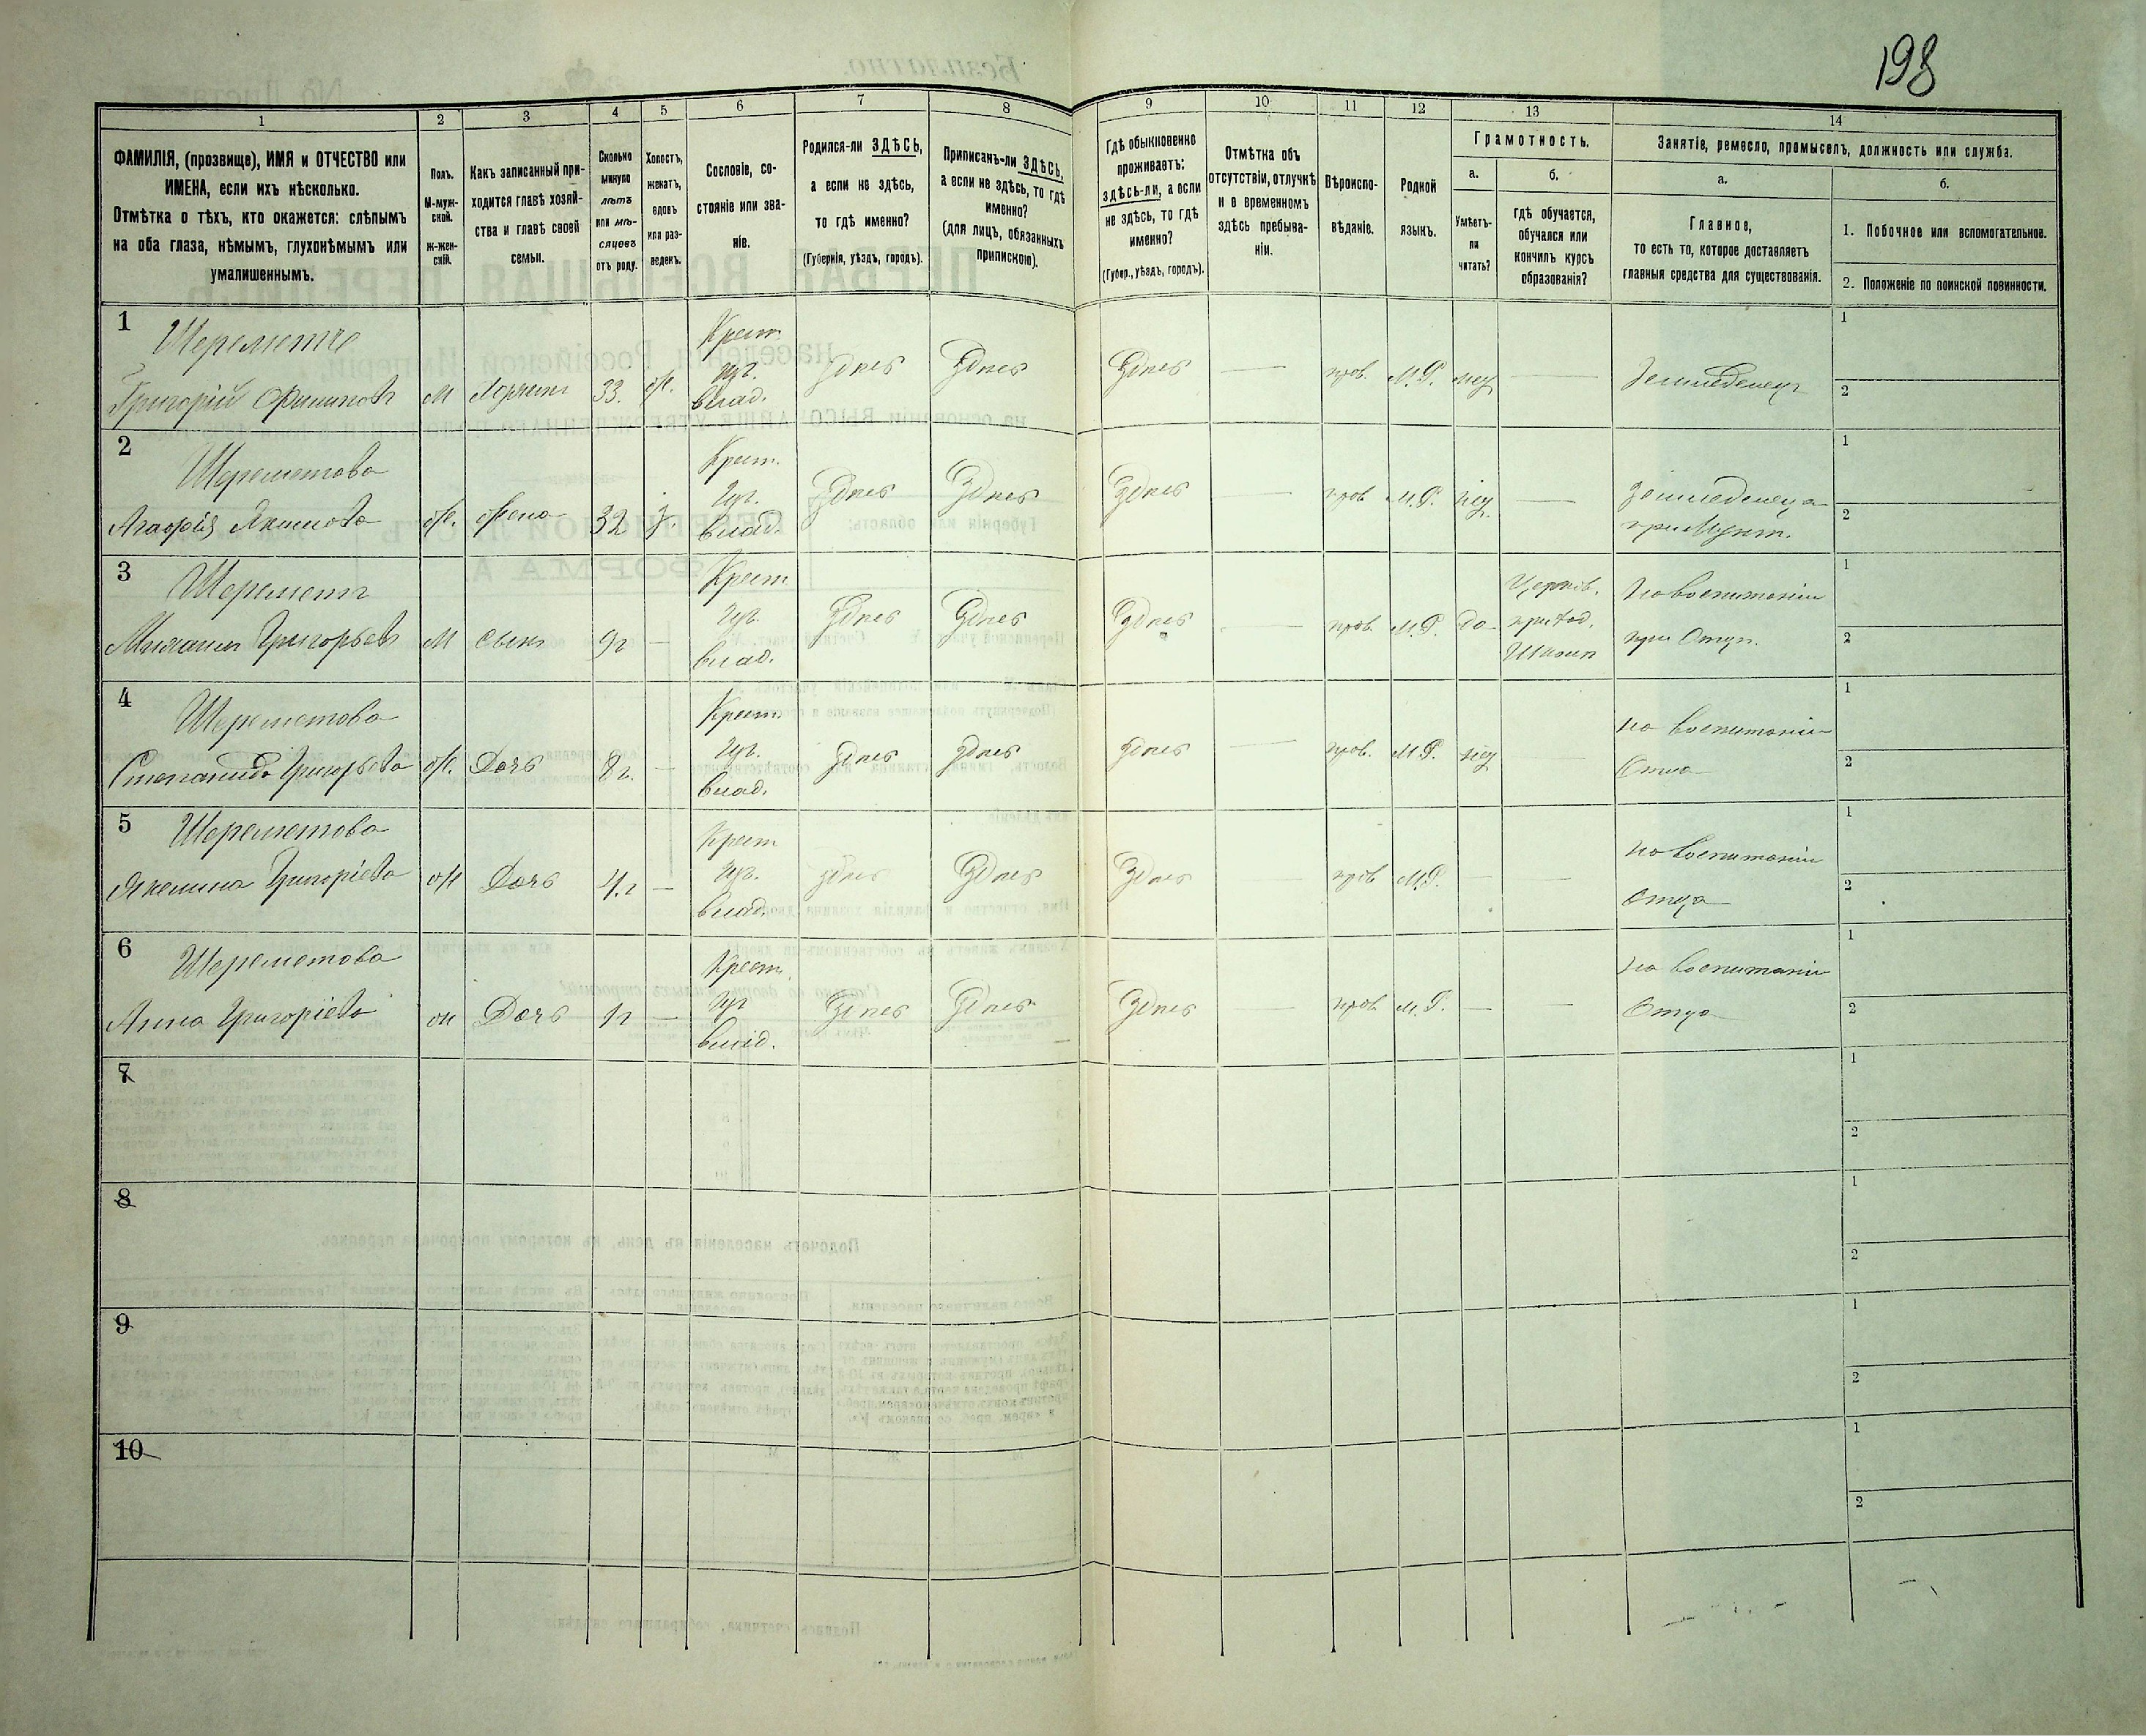 198
1
2
3
4
5
6
7
8
9
10
11
12
13
14
ФАМИЛІЯ, (прозвище), ИМЯ и ОТЧЕСТВО или
ИМЕНА, если ихъ нѣсколько.
Отмѣтка о тѣхъ, кто окажется: слѣпымъ
на оба глаза, нѣмымъ, глухонѣмымъ или
умалишеннымъ.
Полъ.
М-муж-
ской.
ж-жен-
скій.
Какъ записанный при-
ходится главѣ хозяй-
ства и главѣ своей
семьи.
Сколько
минуло
лѣтъ
или мѣ-
сяцевъ
отъ роду.
Холостъ,
женатъ,
вдовъ
или раз-
веденъ.
Сословіе, со-
стояніе или зва-
ніе.
Родился-ли ЗДѢСЬ,
а если не здѣсь,
то гдѣ именно?
(Губернія, уѣздъ, городъ).
Приписанъ-ли ЗДѢСЬ,
а если не здѣсь, то гдѣ
именно?
(для лицъ, обязанныхъ
припискою).
Гдѣ обыкновенно
проживаетъ:
ЗДѢСЬ-ли, а если
не здѣсь, то гдѣ
именно?
(Губер., уѣздъ, городъ).
Отмѣтка объ
отсутствіи, отлучкѣ
и о временномъ
здѣсь пребыва-
ніи.
Вѣроиспо-
вѣданіе.
Родной
языкъ.
Грамотность.
а.
Умѣетъ-
ли
читать?
б.
гдѣ обучается,
обучался или
кончилъ курсъ
образованія?
Занятіе, ремесло, промыселъ, должность или служба.
а.
Главное,
то есть то, которое доставляетъ
главныя средства для существованія.
б.
1. Побочное или вспомогательное.
2. Положеніе по воинской повинности.
1
Шереметъ
Григорій
М
33.
Крест.
влад.
Здѣсь
Здѣсь
Здѣсь
прав.
М.Р.
нѣт
Земледелец
1
2
2
Шереметова
Агафія Якимова
ж.
жена
32
з.
Крест.
влад.
Здѣсь
Здѣсь
Здѣсь
прав
М.Р.
нѣт
земледелеца
при Мужт.
1
2
3
Шереметъ
Михаилъ Григорьевъ
М
сынъ
9г
—
Крест
влад.
Здѣсь
Здѣсь
Здѣсь
прав.
М.Р.
да
Церков.
приход.
Школѣ
На воспитаніи
при Отцѣ.
1
2
4
Шереметова
Степанида Григорьева
ж.
Дочь
8г.
—
Крест.
влад.
Здѣсь
здѣсь
здѣсь
прав.
М.Р.
нѣт
на воспитаніи
Отца
1
2
5
Шереметова
Григоріева
ж
Дочь
4.г
—
Крест
влад.
здѣсь
Здѣсь
Здѣсь
прав
М.Р.
на воспитаніи
Отца
1
2
6
Шереметова
Анна Григоріева
ж
Дочь
1г
—
Крест.
влад.
Здѣсь
Здѣсь
Здѣсь
прав
М.Р.
на воспитаніи
Отца
1
2
7
1
2
8
1
2
9
1
2
10
1
2